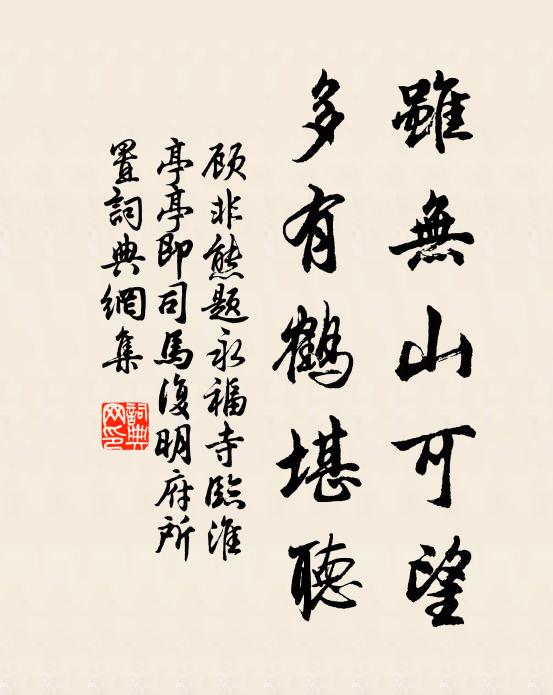 雖無山可望
多有鶴堪聽
顾非熊题永福寺臨淮
亭亭即司馬復明府所
置詞典網集
詞典网印